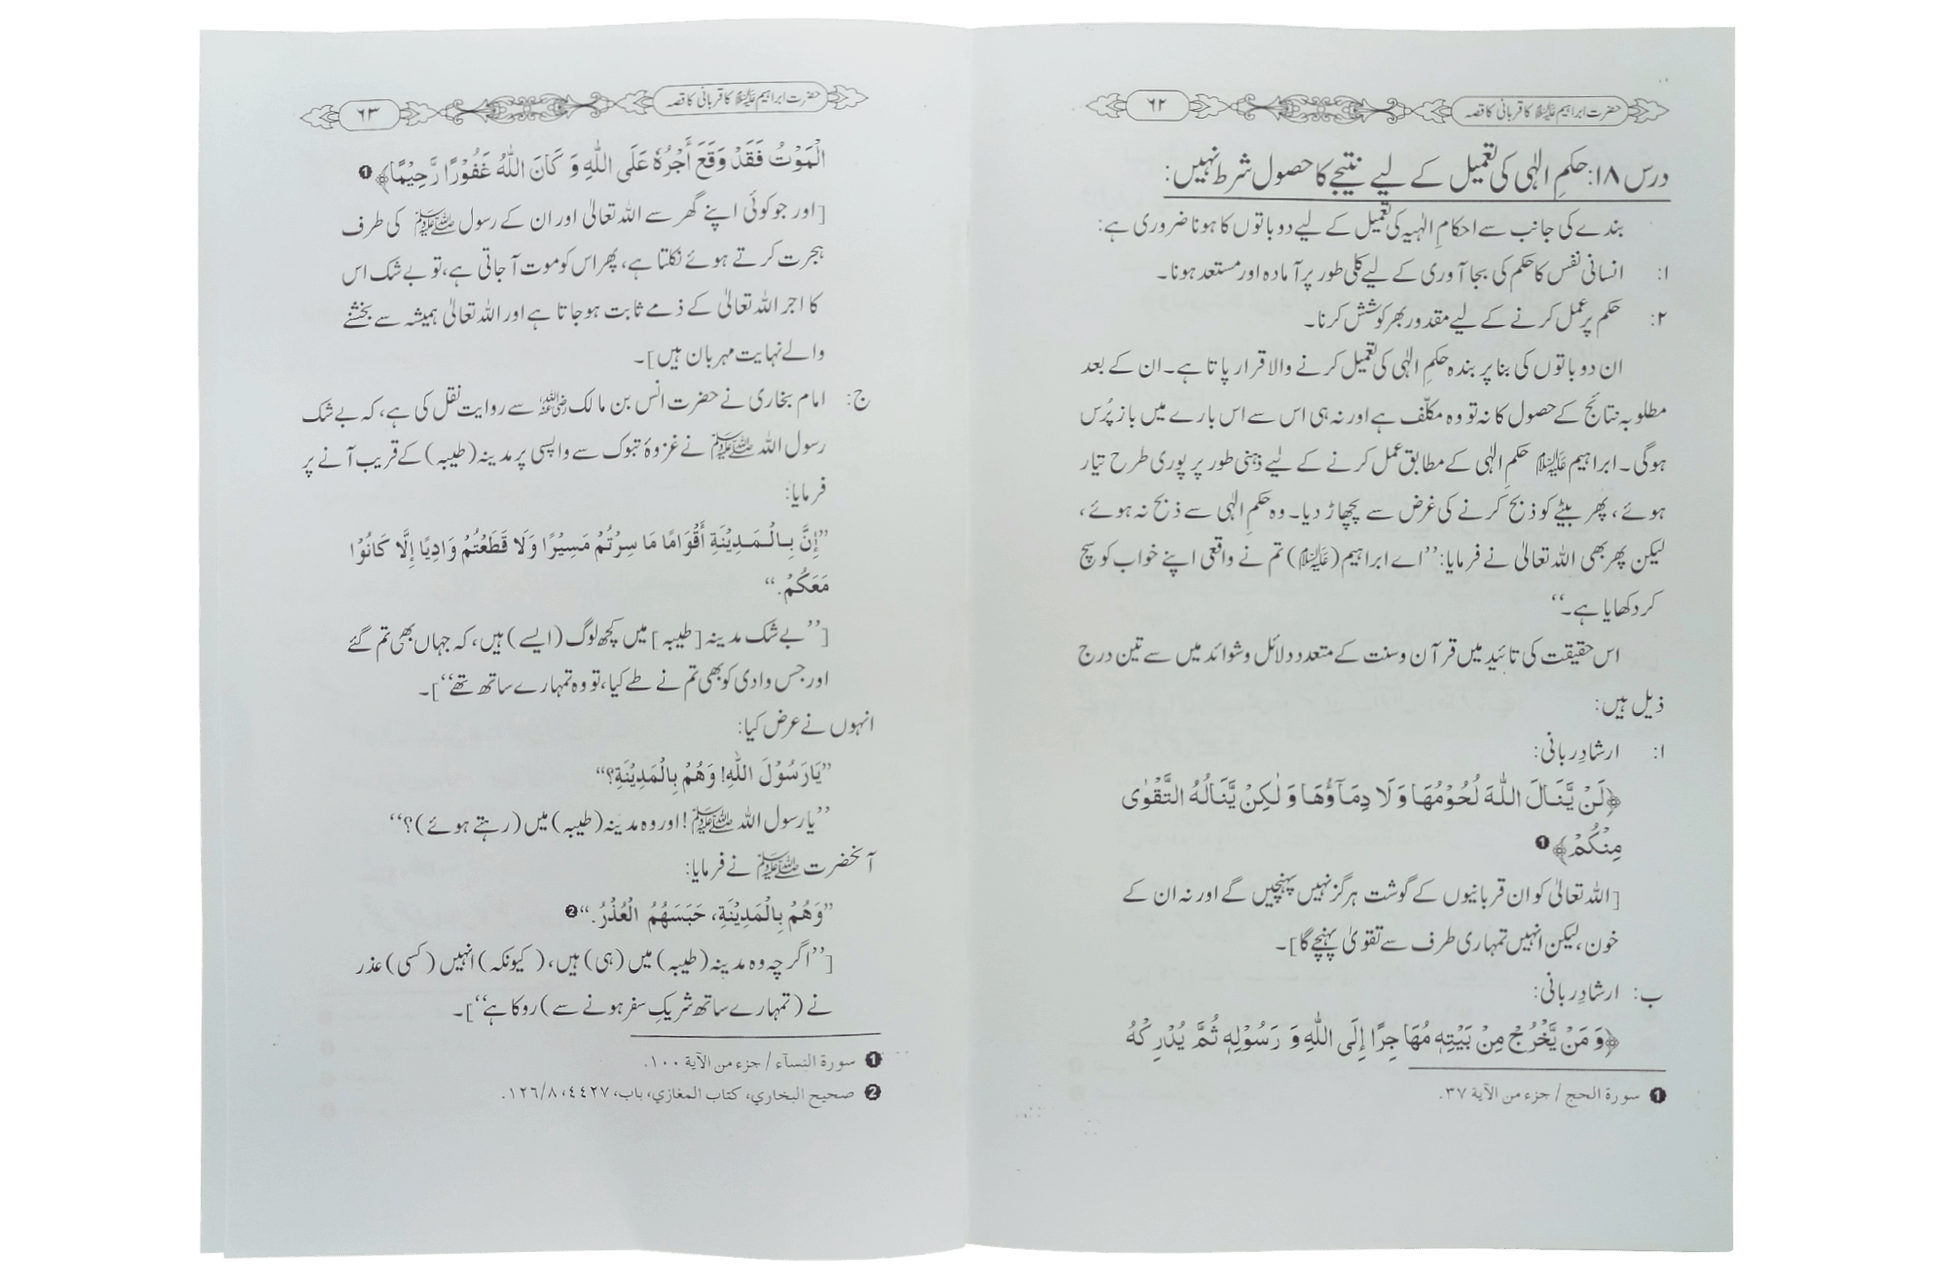 حضرت ابراہیم علیہ السلام کا قربانی کا قصہ ۶۲
درس ۱۸: حکمِ الٰہی کی تعمیل کے لیے نتیجے کا حصول شرط نہیں:
بندے کی جانب سے احکامِ الٰہیہ کی تعمیل کے لیے دو باتوں کا ہونا ضروری ہے:
۱: انسانی نفس کا حکم کی بجا آوری کے لیے کلی طور پر آمادہ اور مستعد ہونا۔
۲: حکم پر عمل کرنے کے لیے مقدور بھر کوشش کرنا۔
ان دو باتوں کی بنا پر بندہ حکمِ الٰہی کی تعمیل کرنے والا قرار پاتا ہے۔ ان کے بعد
مطلوبہ نتائج کے حصول کا نہ تو وہ مکلّف ہے اور نہ ہی اس سے اس بارے میں باز پُرس
ہوگی۔ ابراہیم علیہ السلام حکمِ الٰہی کے مطابق عمل کرنے کے لیے ذہنی طور پر پوری طرح تیار
ہوئے، پھر بیٹے کو ذبح کرنے کی غرض سے پچھاڑ دیا۔ وہ حکمِ الٰہی سے ذبح نہ ہوئے،
لیکن پھر بھی اللہ تعالیٰ نے فرمایا: ’’اے ابراہیم (علیہ السلام) تم نے واقعی اپنے خواب کو سچ
کر دکھایا ہے۔‘‘
اس حقیقت کی تائید میں قرآن و سنت کے متعدد دلائل و شوائد میں سے تین درج
ذیل ہیں:
ا: ارشادِ ربانی:
﴿لَنْ يَّنَالَ اللّٰهَ لُحُوْمُهَا وَلَا دِمَآؤُهَا وَلٰكِنْ يَّنَالُهُ التَّقْوٰى
مِنْكُمْ﴾ ❶
[اللہ تعالیٰ کو ان قربانیوں کے گوشت ہرگز نہیں پہنچیں گے اور نہ ان کے
خون، لیکن انہیں تمہاری طرف سے تقویٰ پہنچے گا]۔
ب: ارشادِ ربانی:
﴿وَ مَنْ يَّخْرُجْ مِنْ بَيْتِهٖ مُهَاجِرًا إِلَى اللّٰهِ وَ رَسُوْلِهٖ ثُمَّ يُدْرِكْهُ
❶ سورة الحج / جزء من الآية ۳۷.
حضرت ابراہیم علیہ السلام کا قربانی کا قصہ ۶۳
الْمَوْتُ فَقَدْ وَقَعَ أَجْرُهٗ عَلَى اللّٰهِ وَ كَانَ اللّٰهُ غَفُوْرًا رَّحِيْمًا﴾ ❶
[اور جو کوئی اپنے گھر سے اللہ تعالیٰ اور ان کے رسول ﷺ کی طرف
ہجرت کرتے ہوئے نکلتا ہے، پھر اس کو موت آ جاتی ہے، تو بے شک اس
کا اجر اللہ تعالیٰ کے ذمے ثابت ہو جاتا ہے اور اللہ تعالیٰ ہمیشہ سے بخشنے
والے نہایت مہربان ہیں]۔
ج: امام بخاری نے حضرت انس بن مالک رضی اللہ عنہ سے روایت نقل کی ہے، کہ بے شک
رسول اللہ ﷺ نے غزوۂ تبوک سے واپسی پر مدینہ (طیبہ) کے قریب آنے پر
فرمایا:
’’إِنَّ بِالْمَدِيْنَةِ أَقْوَامًا مَا سِرْتُمْ مَسِيْرًا وَلَا قَطَعْتُمْ وَادِيًا إِلَّا كَانُوْا
مَعَكُمْ.‘‘
[’’بے شک مدینہ [طیبہ] میں کچھ لوگ (ایسے) ہیں، کہ جہاں بھی تم گئے
اور جس وادی کو بھی تم نے طے کیا، تو وہ تمہارے ساتھ تھے‘‘]۔
انہوں نے عرض کیا:
’’يَارَسُوْلَ اللّٰهِ! وَهُمْ بِالْمَدِيْنَةِ؟‘‘
’’یا رسول اللہ ﷺ! اور وہ مدینہ (طیبہ) میں (رہتے ہوئے)؟‘‘
آنحضرت ﷺ نے فرمایا:
’’وَهُمْ بِالْمَدِيْنَةِ، حَبَسَهُمُ الْعُذْرُ.‘‘ ❷
[’’اگرچہ وہ مدینہ (طیبہ) میں (ہی) ہیں، (کیونکہ) انہیں (کسی) عذر
نے (تمہارے ساتھ شریکِ سفر ہونے سے) روکا ہے‘‘]۔
❶ سورة النسآء / جزء من الآية ۱۰۰.
❷ صحيح البخاري، كتاب المغازي، باب، ٤٤٢٧، ١٢٦/٨.